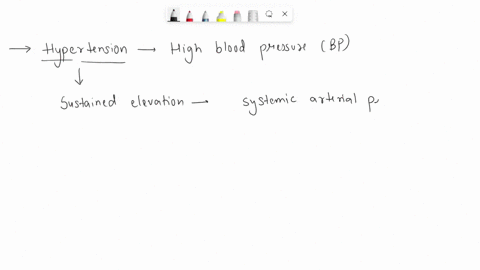 → Hypertension → High blood pressure (BP)
↓
Sustained elevation → systemic arterial p